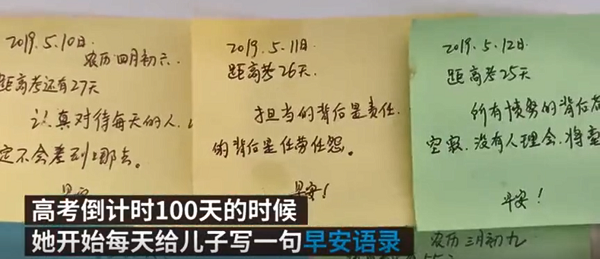 2019.5.10日
农历四月初六.
距高考还有27天
认真对待每天的人,
定不会差到哪去。
早安
2019.5.11日.
距高考26天.
担当的背后是责任.
的背后是任劳任怨。
早安!
2019.5.12日
距高考25天
所有愤怒的背后
空寂.没有人理会.将
早安!
农历三月初九
高考倒计时100天的时候
她开始每天给儿子写一句早安语录